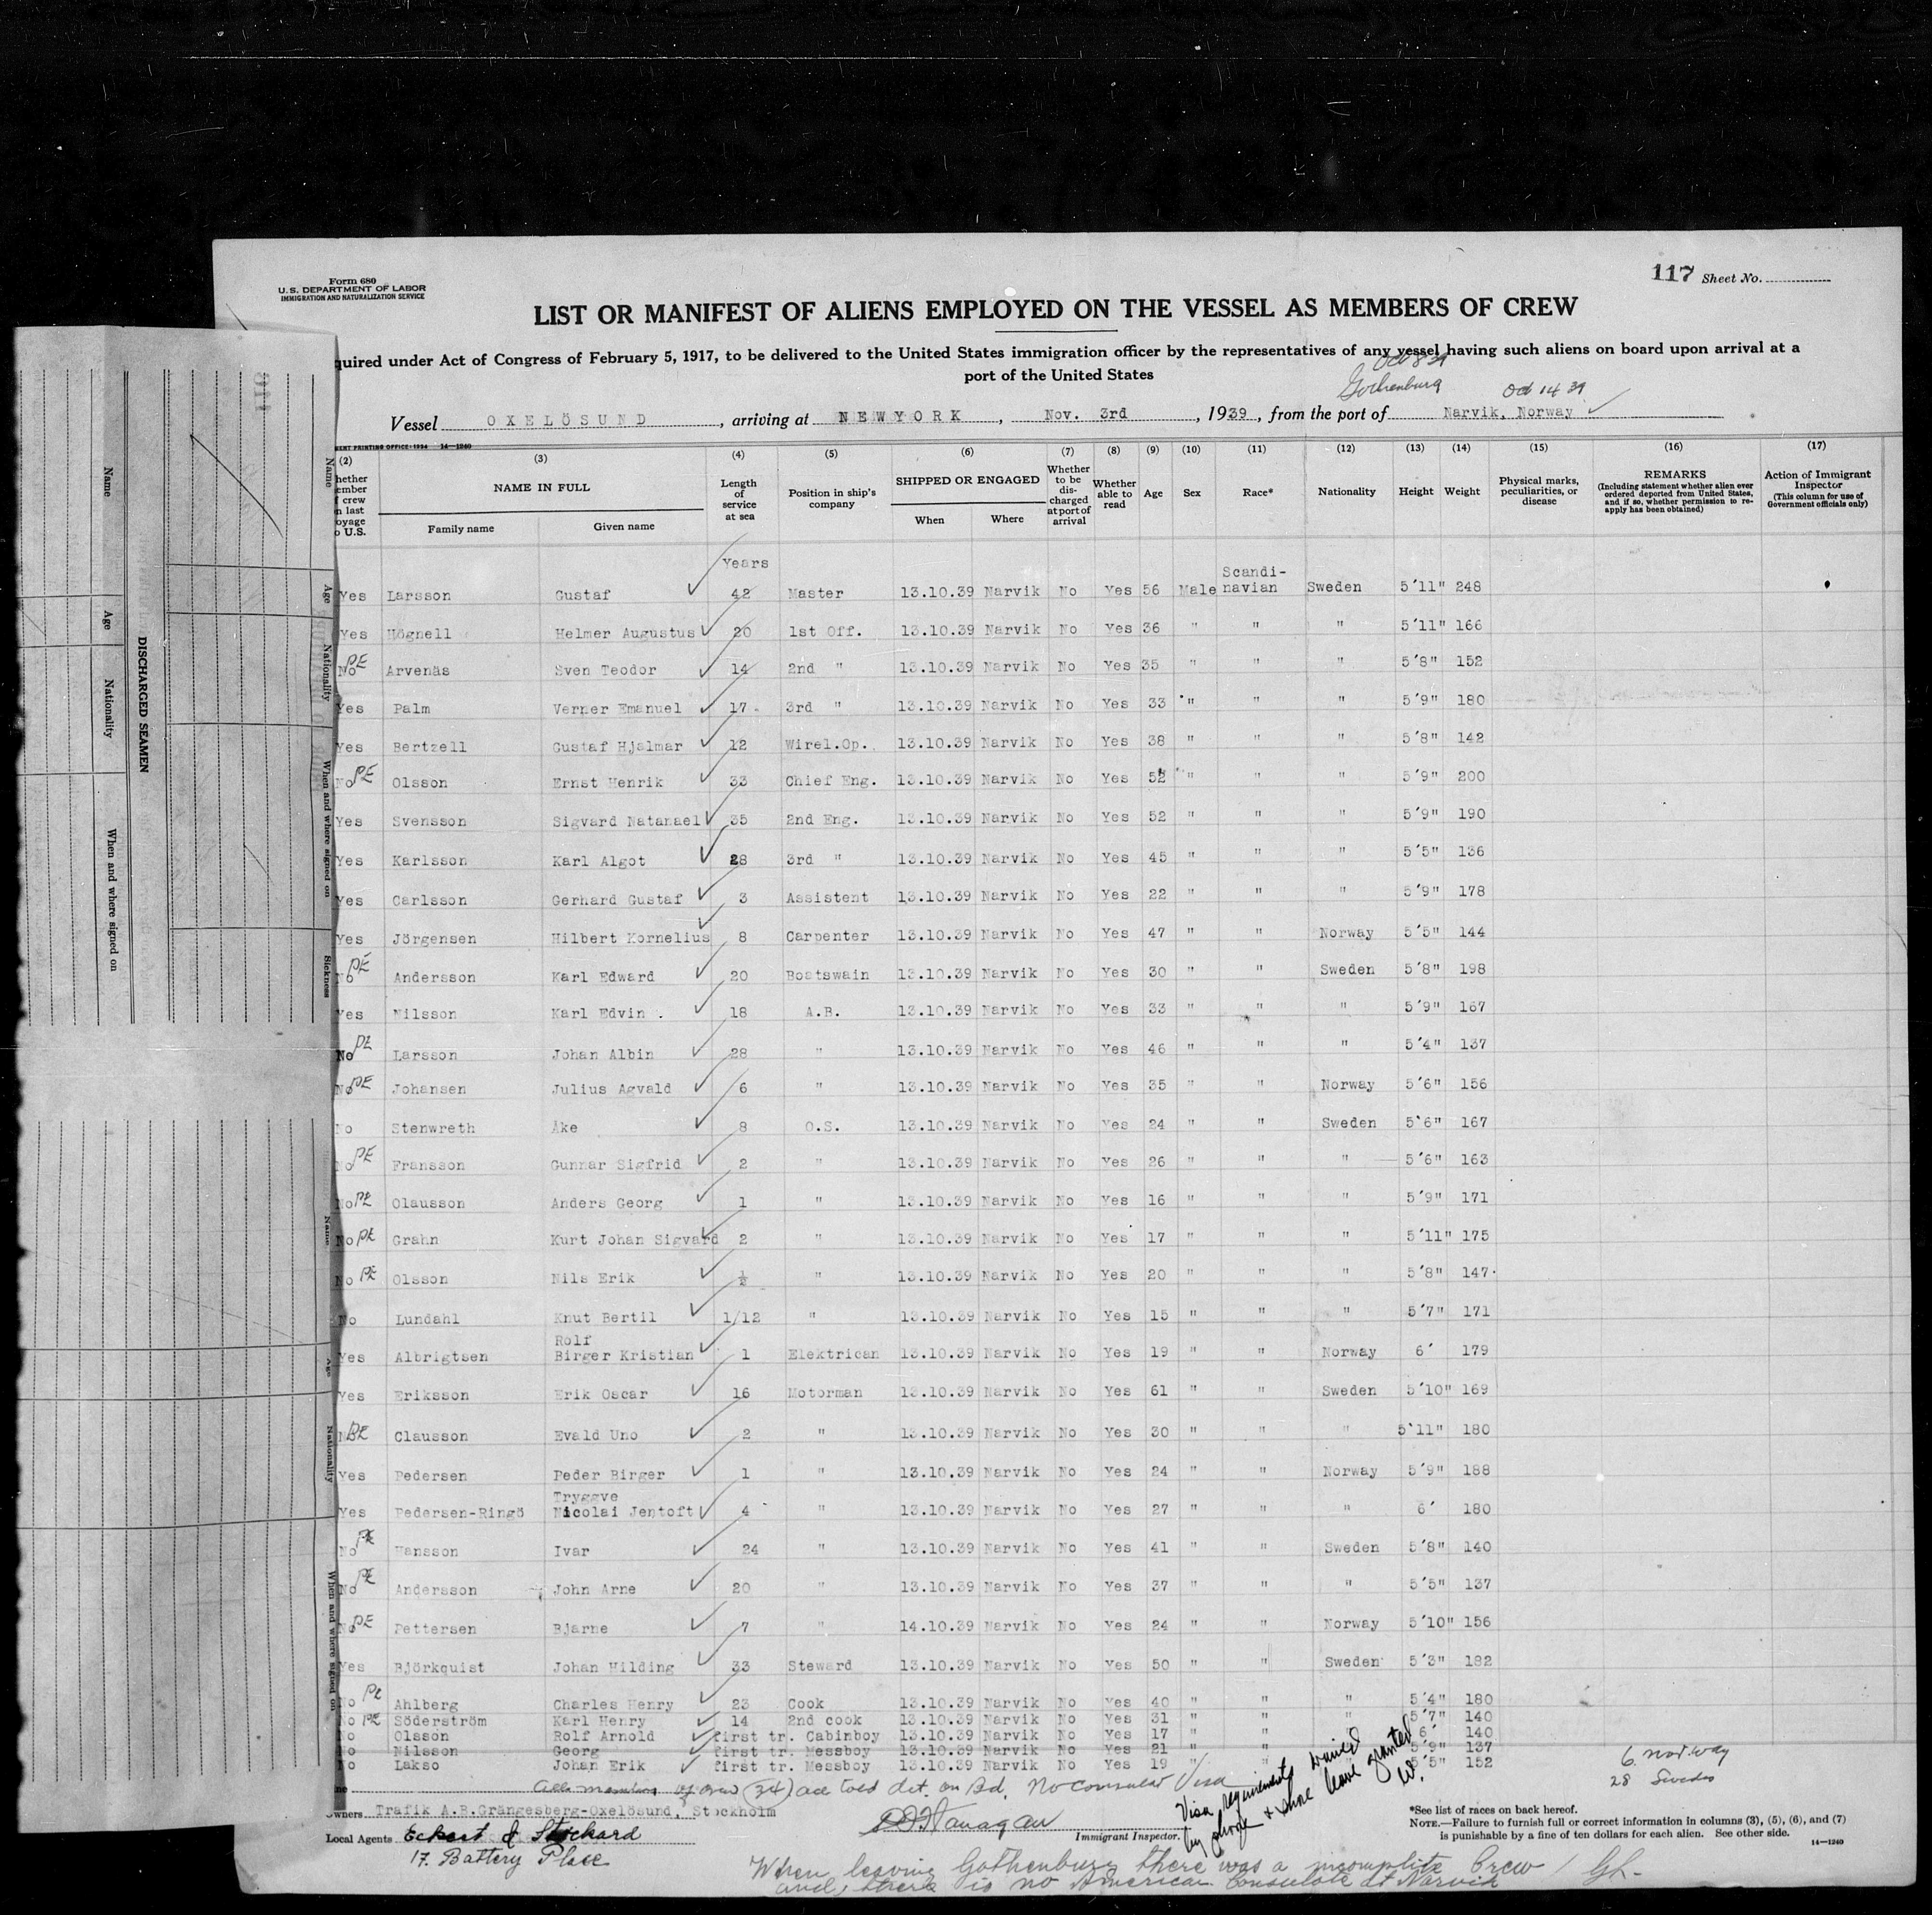 Form 680
U.S. DEPARTMENT OF LABOR
IMMIGRATION AND NATURALIZATION SERVICE
117 Sheet No.
LIST OR MANIFEST OF ALIENS EMPLOYED ON THE VESSEL AS MEMBERS OF CREW
quired under Act of Congress of February 5, 1917, to be delivered to the United States immigration officer by the representatives of any vessel having such aliens on board upon arrival at a
port of the United States
Oct 8 39
Gothenburg Oct 14 39
Vessel OXELÖSUND, arriving at NEW YORK, Nov. 3rd, 1939, from the port of Narvik, Norway
ENT PRINTING OFFICE: 1934 14—1240
(2) (3) (4) (5) (6) (7) (8) (9) (10) (11) (12) (13) (14) (15) (16) (17)
hether ember crew n last oyage o U.S. NAME IN FULL Family name Given name Length of service at sea Position in ship's company SHIPPED OR ENGAGED When Where Whether to be discharged at port of arrival Whether able to read Age Sex Race* Nationality Height Weight Physical marks, peculiarities, or disease REMARKS (Including statement whether alien ever ordered deported from United States, and if so, whether permission to reapply has been obtained) Action of Immigrant Inspector (This column for use of Government officials only)
Years
Yes Larsson Gustaf 42 Master 13.10.39 Narvik No Yes 56 Male Scandi-navian Sweden 5'11" 248
Yes Högnell Helmer Augustus 20 1st Off. 13.10.39 Narvik No Yes 36 " " " 5'11" 166
No PE Arvenäs Sven Teodor 14 2nd " 13.10.39 Narvik No Yes 35 " " " 5'8" 152
Yes Palm Verner Emanuel 17 3rd " 13.10.39 Narvik No Yes 33 " " " 5'9" 180
Yes Bertzell Gustaf Hjalmar 12 Wirel.Op. 13.10.39 Narvik No Yes 38 " " " 5'8" 142
No PE Olsson Ernst Henrik 33 Chief Eng. 13.10.39 Narvik No Yes 52 " " " 5'9" 200
Yes Svensson Sigvard Natanael 35 2nd Eng. 13.10.39 Narvik No Yes 52 " " " 5'9" 190
Yes Karlsson Karl Algot 28 3rd " 13.10.39 Narvik No Yes 45 " " " 5'5" 136
Yes Carlsson Gerhard Gustaf 3 Assistent 13.10.39 Narvik No Yes 22 " " " 5'9" 178
Yes Jörgensen Hilbert Kornelius 8 Carpenter 13.10.39 Narvik No Yes 47 " " Norway 5'5" 144
No PE Andersson Karl Edward 20 Boatswain 13.10.39 Narvik No Yes 30 " " Sweden 5'8" 198
Yes Nilsson Karl Edvin . 18 A.B. 13.10.39 Narvik No Yes 33 " " " 5'9" 167
No PE Larsson Johan Albin 28 " 13.10.39 Narvik No Yes 46 " " " 5'4" 137
No PE Johansen Julius Agvald 6 " 13.10.39 Narvik No Yes 35 " " Norway 5'6" 156
No Stenwreth Åke 8 O.S. 13.10.39 Narvik No Yes 24 " " Sweden 5'6" 167
No PE Fransson Gunnar Sigfrid 2 " 13.10.39 Narvik No Yes 26 " " " 5'6" 163
No PE Olausson Anders Georg 1 " 13.10.39 Narvik No Yes 16 " " " 5'9" 171
No PE Grahn Kurt Johan Sigvard 2 " 13.10.39 Narvik No Yes 17 " " " 5'11" 175
No PE Olsson Nils Erik ½ " 13.10.39 Narvik No Yes 20 " " " 5'8" 147
No Lundahl Knut Bertil 1/12 " 13.10.39 Narvik No Yes 15 " " " 5'7" 171
Rolf
Yes Albrigtsen Birger Kristian 1 Elektrican 13.10.39 Narvik No Yes 19 " " Norway 6' 179
Yes Eriksson Erik Oscar 16 Motorman 13.10.39 Narvik No Yes 61 " " Sweden 5'10" 169
No PE Clausson Evald Uno 2 " 13.10.39 Narvik No Yes 30 " " " 5'11" 180
Yes Pedersen Peder Birger 1 " 13.10.39 Narvik No Yes 24 " " Norway 5'9" 188
Tryggve
Yes Pedersen-Ringö Nicolai Jentoft 4 " 13.10.39 Narvik No Yes 27 " " " 6' 180
No PE Hansson Ivar 24 " 13.10.39 Narvik No Yes 41 " " Sweden 5'8" 140
No PE Andersson John Arne 20 " 13.10.39 Narvik No Yes 37 " " " 5'5" 137
No PE Pettersen Bjarne 7 " 14.10.39 Narvik No Yes 24 " " Norway 5'10" 156
Yes Björkquist Johan Hilding 33 Steward 13.10.39 Narvik No Yes 50 " " Sweden 5'3" 182
No PE Ahlberg Charles Henry 23 Cook 13.10.39 Narvik No Yes 40 " " " 5'4" 180
No PE Söderström Karl Henry 14 2nd cook 13.10.39 Narvik No Yes 31 " " " 5'7" 140
No Olsson Rolf Arnold first tr. Cabinboy 13.10.39 Narvik No Yes 17 " " " 6' 140
No Nilsson Georg first tr. Messboy 13.10.39 Narvik No Yes 21 " " 5'9" 137
No Lakso Johan Erik first tr. Messboy 13.10.39 Narvik No Yes 19 " " 5'5" 152
6 Norway
28 Swedes
All members of crew (34) all told det. on Bd. No consular Visa
Visa requirements waived
by phone & shore leave granted
W.
Owners Trafik A.B.Grängesberg-Oxelösund, Stockholm
Local Agents Eckert & Stockard
17. Battery Place
Immigrant Inspector.
*See list of races on back hereof.
NOTE.—Failure to furnish full or correct information in columns (3), (5), (6), and (7)
is punishable by a fine of ten dollars for each alien. See other side.
14—1240
When leaving Gothenburg there was a incomplite Crew
and there is no American Consulate at Narvik
DISCHARGED SEAMEN
Name
Age
Nationality
When and where signed on
Name
Age
Nationality
When and where signed on
Sickness
Name
Age
Nationality
When and where signed on